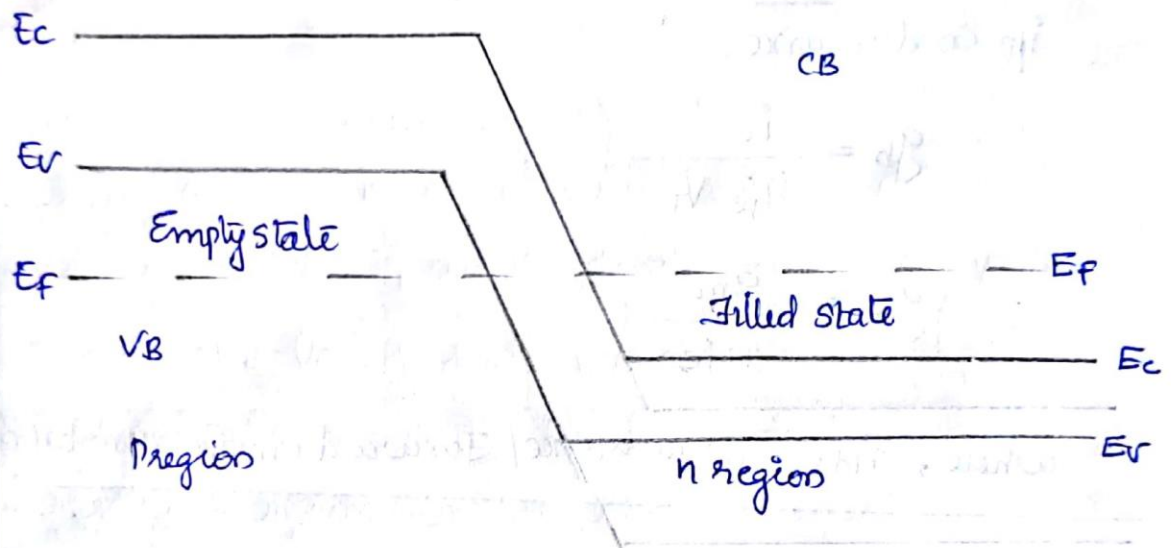 Ec
CB
Ev
Empty state
Ef
Ef
Filled state
VB
Ec
Ev
P region
n region